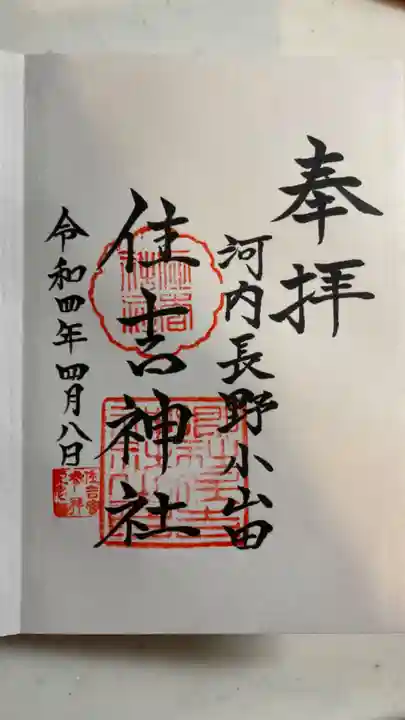 奉拝
河内長野小山田
住吉神社
令和四年四月八日